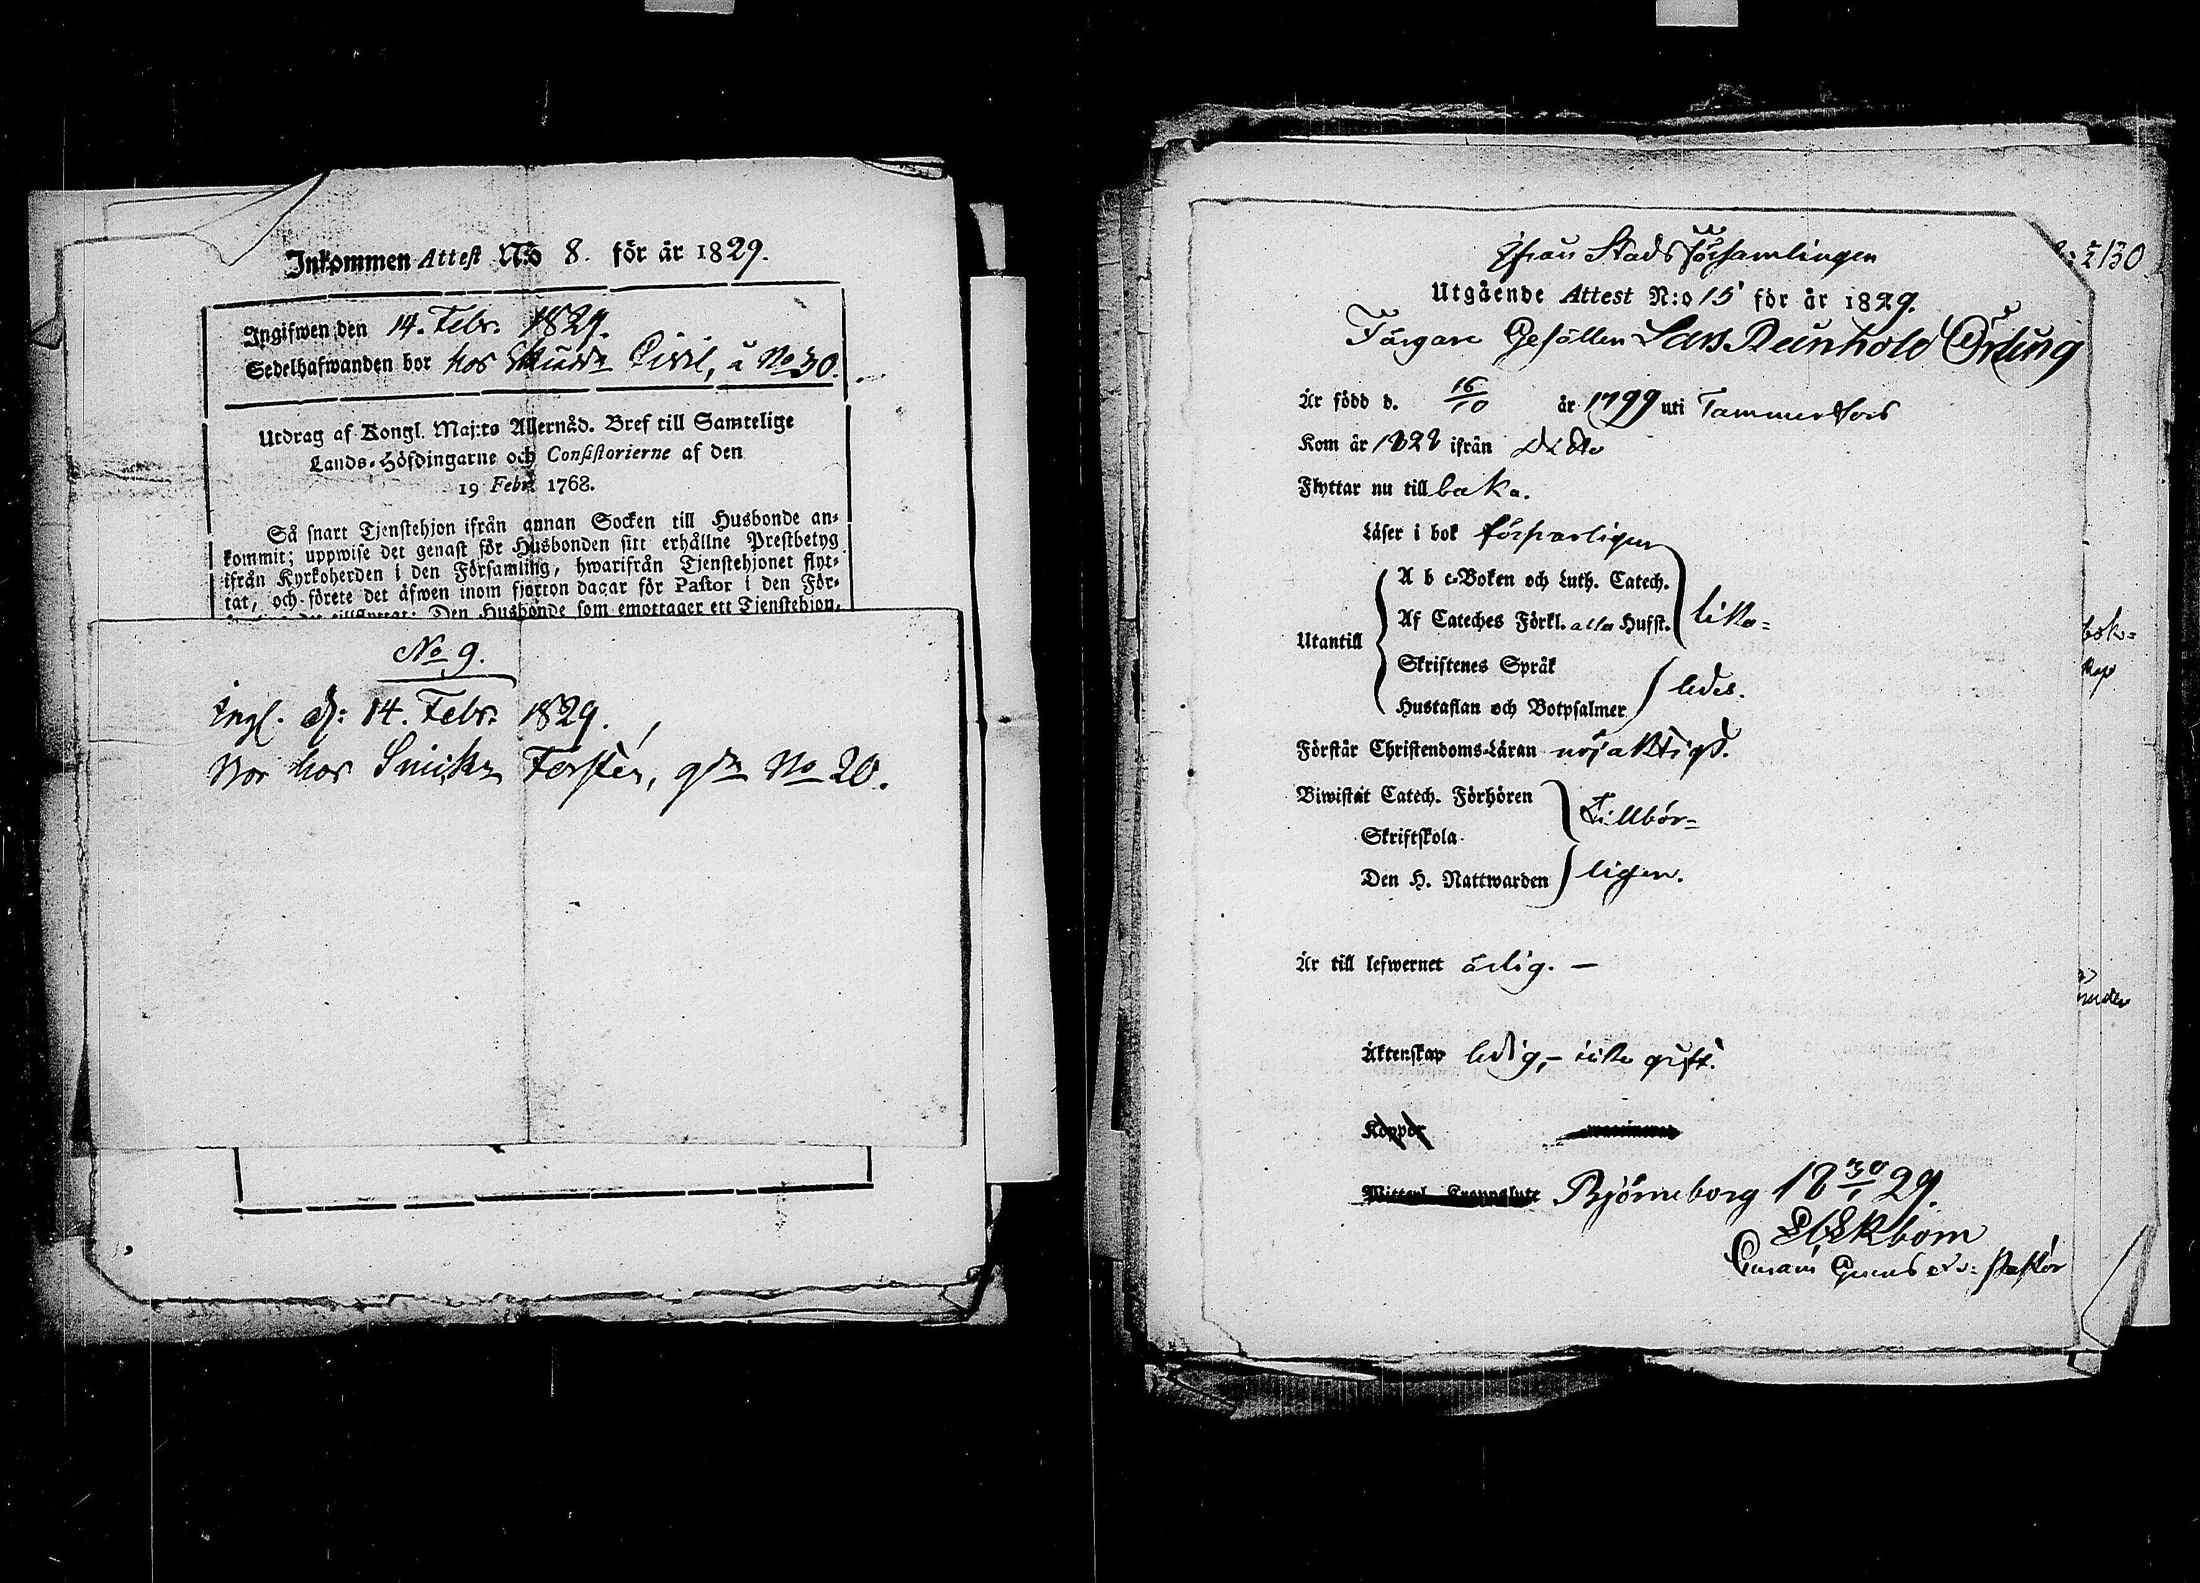 Inkommen Attest N:o 8. för år 1829.
Ingifwen den 14. Febr. 1829.
Sedelhafwanden bor hos Civil, å No 30.
Utdrag af Kongl. Maj:ts Allernåd. Bref till Samtelige
Lands-Höfdingarne och Consistorierne af den
19 Febr. 1768.
Så snart Tjenstehjon ifrån annan Socken till Husbonde an-
kommit; uppwise det genast för Husbonden sitt erhållne Prestbetyg
ifrån Kyrkoherden i den Församling, hwarifrån Tjenstehjonet flyt-
tat, och förete det äfwen inom fjorton dagar för Pastor i den För-
Den Husbonde som emottager ett Tjenstehjon,
No 9.
Ingl. d: 14. Febr. 1829.
Bor hos Snick: Forstén, gdn No 20.
ifrån Stadsförsamlingen
Utgående Attest N:o 15 för år 1829.
Färgare Gesällen Lars Reinhold Örling
Är född d. 16/10 år 1799 uti Tammerfors
Kom år 1828 ifrån dito
Flyttar nu tillbaka.
Läser i bok försvarligen
A b c-Boken och Luth. Catech.
Af Cateches Förkl. alla Hufst.
lika-
Utantill
Skriftenes Språk
Hustaflan och Botpsalmer
ledes.
Förstår Christendoms-Läran nöjaktigt.
Biwistat Catech. Förhören
Tillbör-
Skriftskola
Den H. Nattwarden
ligen.
Är till lefwernet ärlig. —
Äktenskap ledig, - icke gift.
Koppor
Björneborg 18 30/1 29.
Ekbom
Pastor